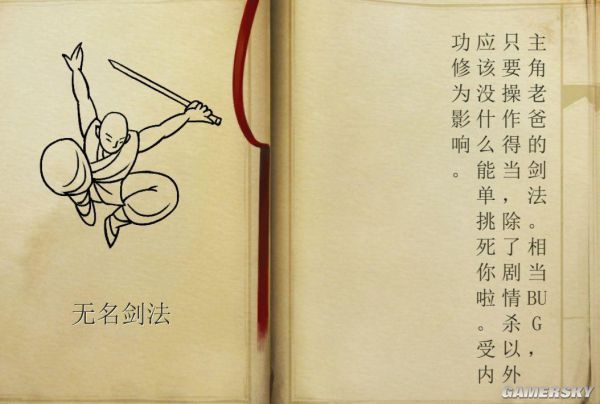 无名剑法
主角老爸的剑法。相当BUG，
只要操作得当，除了剧情杀以外
应该没什么能单挑死你啦。受内
功修为影响。
GAMERSKY